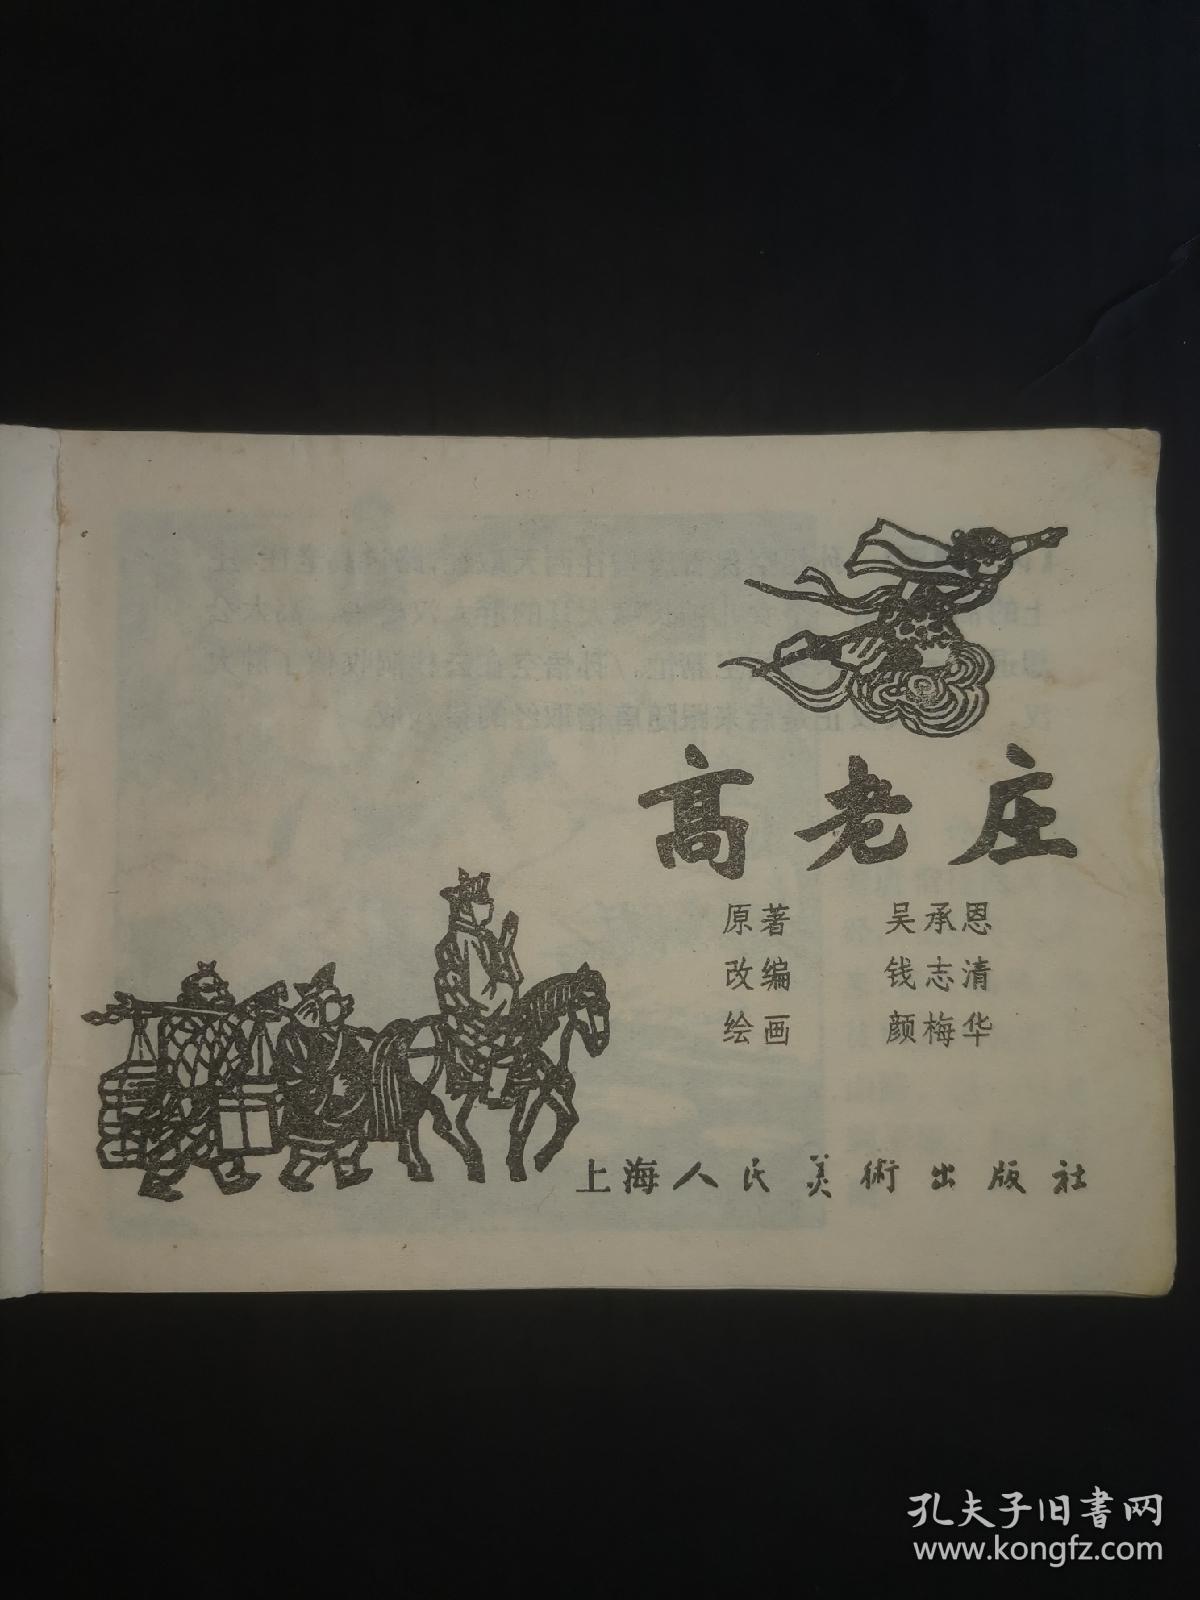 高老庄
原著 吴承恩
改编 钱志清
绘画 颜梅华
上海人民美術出版社
孔夫子旧書网
www.kongfz.com